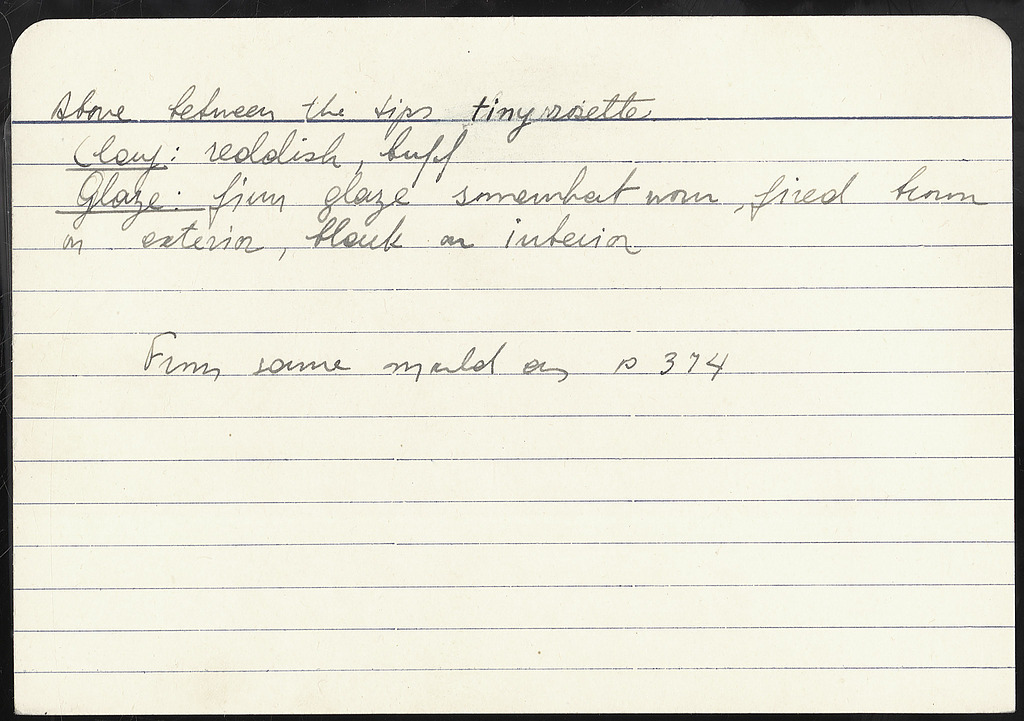 Above between the tips tiny rosette.
Clay: reddish, buff
Glaze: firm glaze somewhat worn, fired brown
on exterior, black on interior
From same mould as P 374